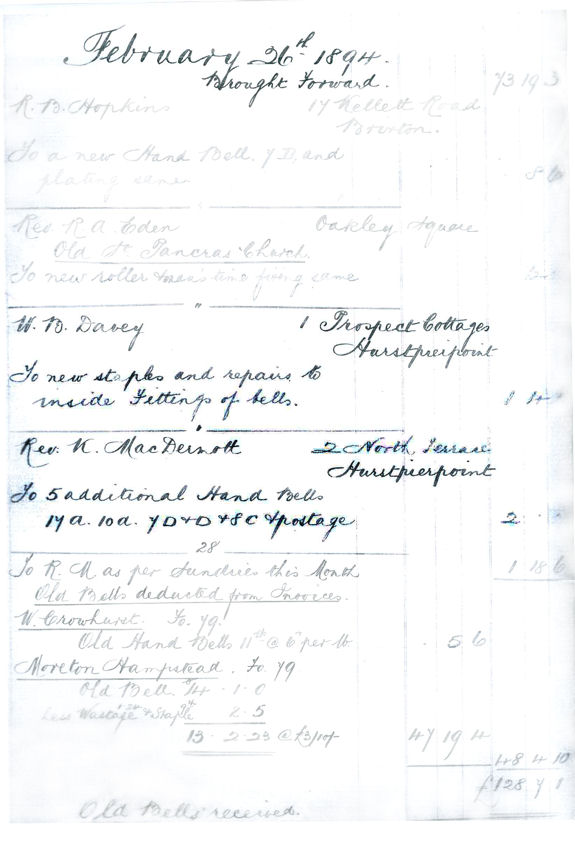 February 26th 1894.
Brought Forward. 73 19 3
R. B. Hopkins 17 Kellett Road
Brixton.
To a new Hand Bell. 7 D, and
plating same 8 6
Rev. R. A. Eden Oakley Square
Old St Pancras Church.
To new roller & man's time fixing same
"
W. B. Davey 1 Prospect Cottages
Hurstpierpoint
To new staples and repairs to
inside Fittings of bells. 1 14
"
Rev. K. MacDermott 2 North Terrace
Hurstpierpoint
To 5 additional Hand Bells
17 a. 10 a. 7 D + D + 8 C & postage 2 . .
28
To R. M as per Sundries this Month 1 18 6
Old Bells deducted from Invoices.
W. Crowhurst. Fo. 79.
Old Hand Bells 11 lb @ 6d per lb. . 5 6
Moreton Hampstead. Fo. 79
Old Bell. 1 . 0
Less Wastage & Staple 2 . 5
13 . 2 . 23 @ 47 19 4
48 4 10
£128 7 1
Old Bells received.